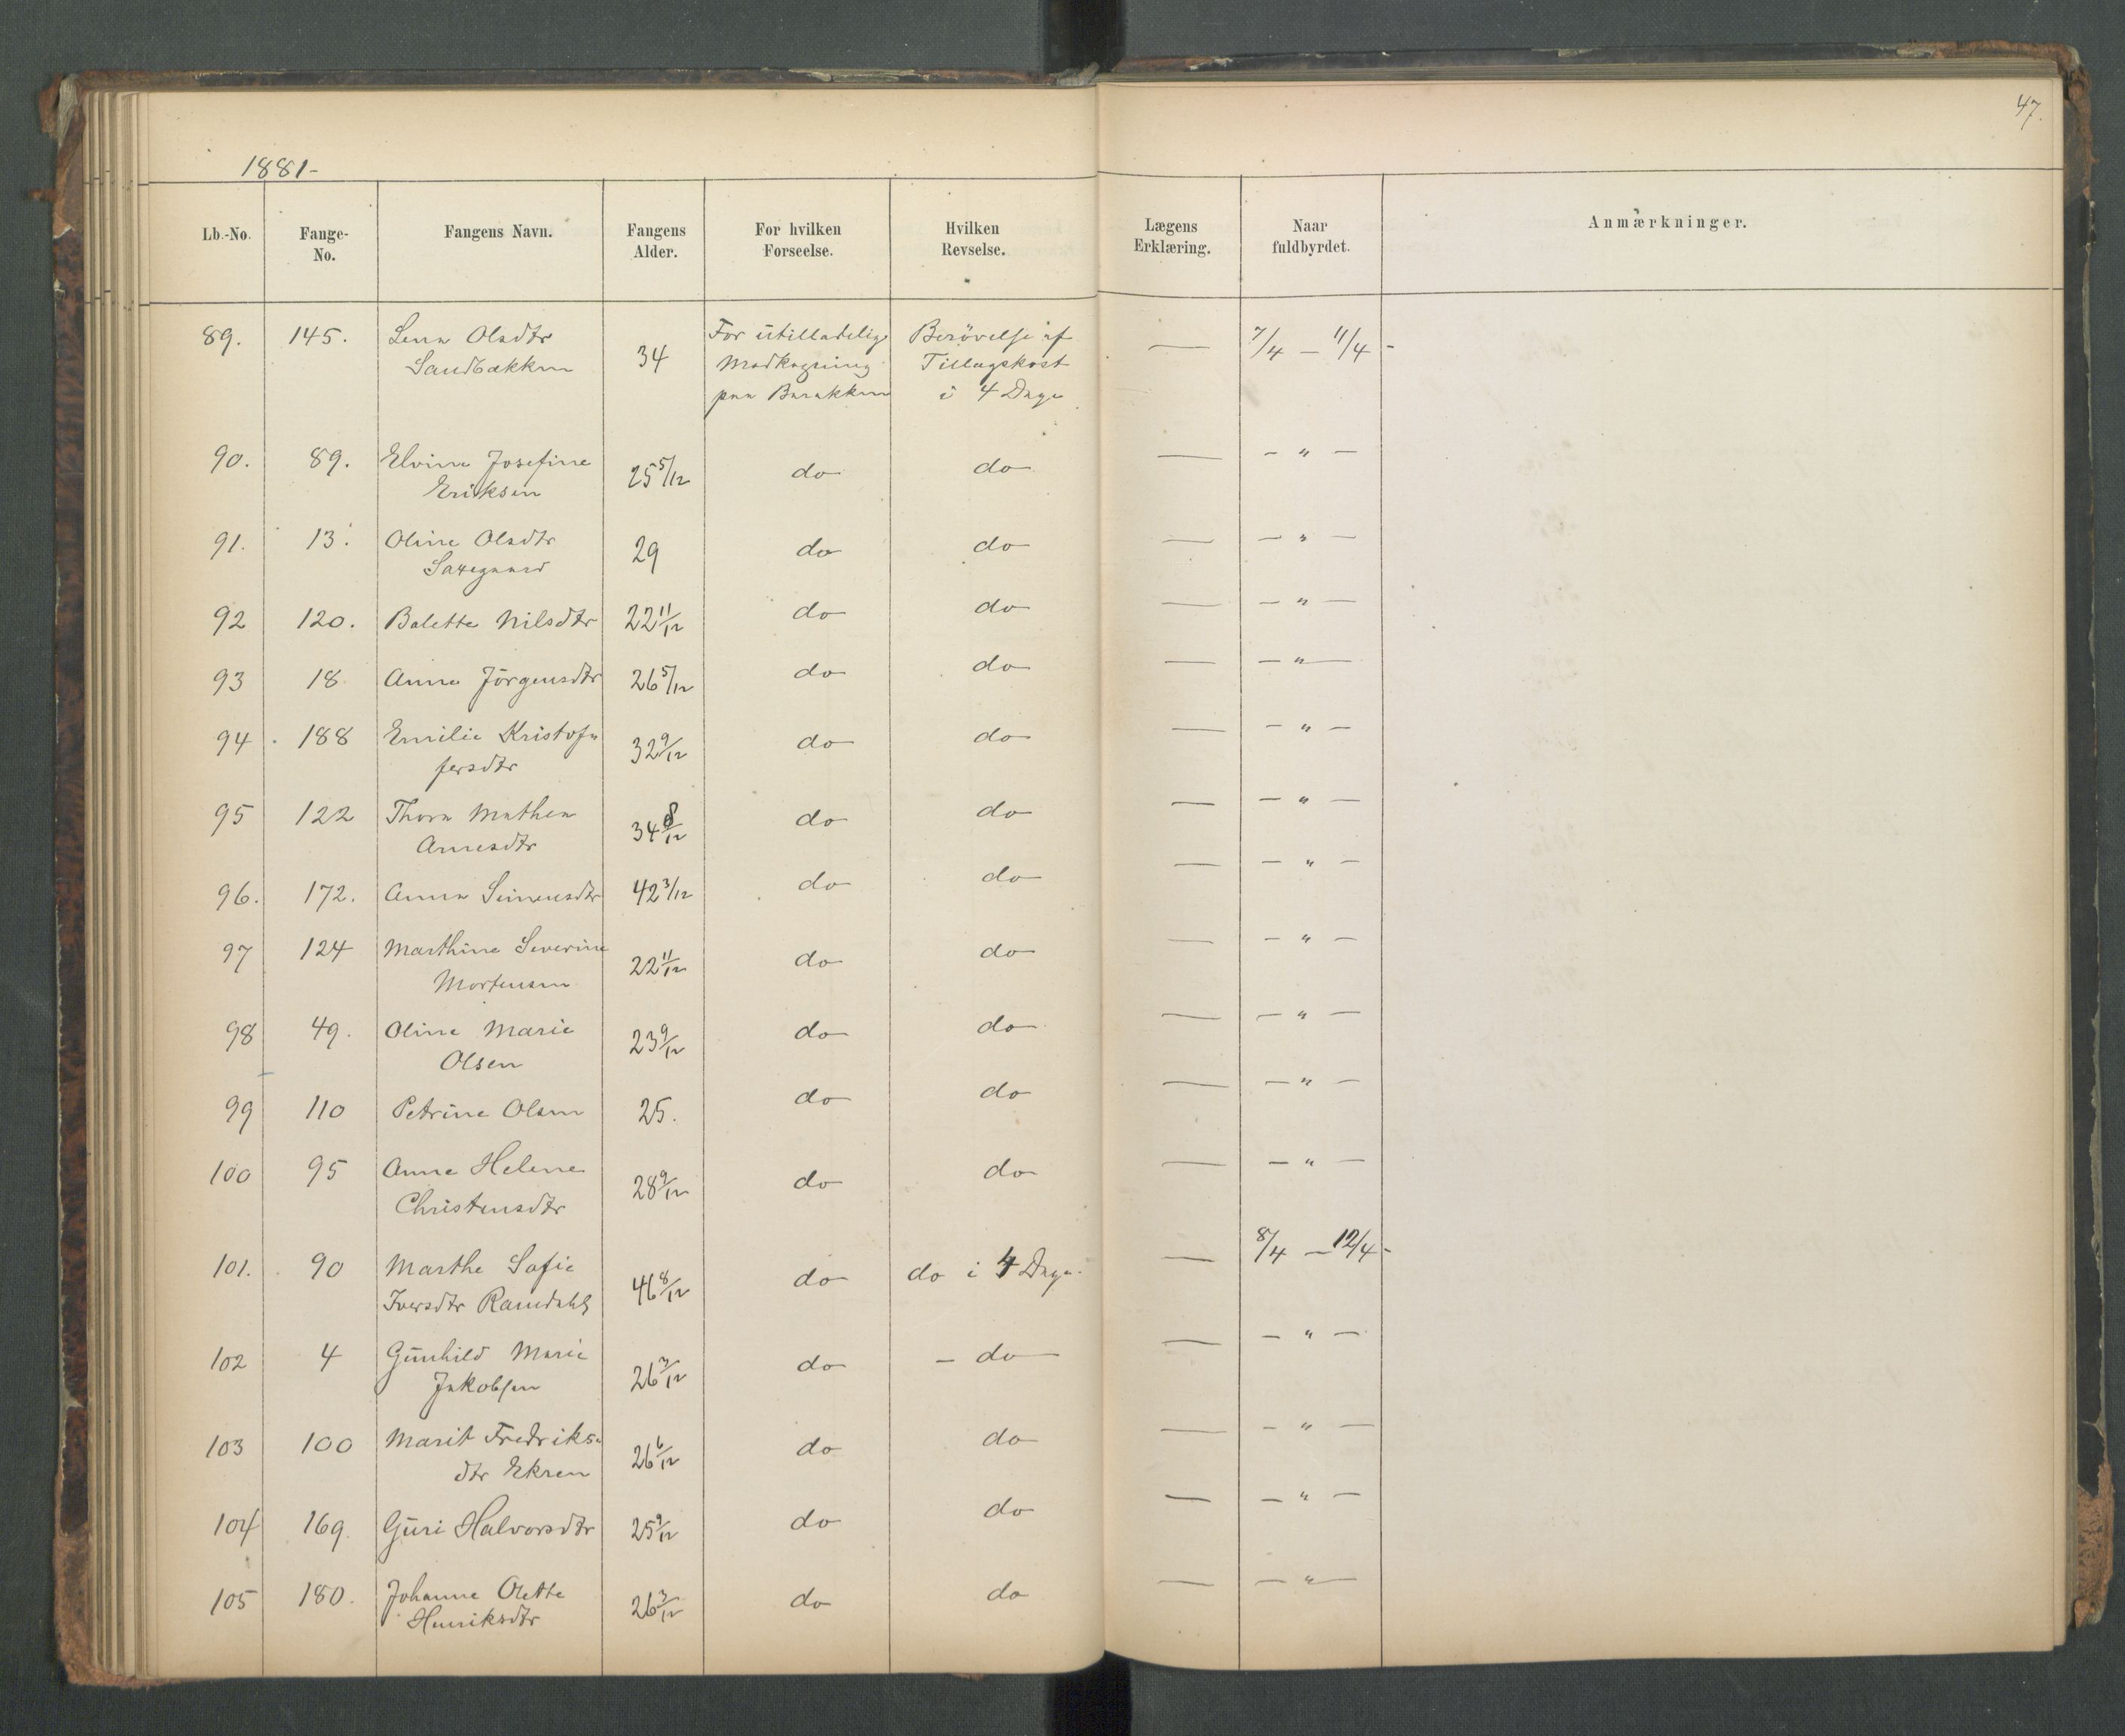 47.
1881-
Lb.-No. Fange-No. Fangens Navn. Fangens Alder. For hvilken Forseelse. Hvilken Revselse. Lægens Erklæring. Naar fuldbyrdet. Anmærkninger.
89. 145. Lena Olsdtr 34 For utilladelig Berövelse af — 7/4 — 11/4 -
Sandbakken Madkogning Tillægskost
paa Barakken i 4 Dage
90. 89. Elvine Josefine 25 5/12 do do — — " —
Eriksen
91. 13. Oline Olsdtr 29 do do — — " —
Saxegaard
92 120. Balette Nilsdtr 22 11/12 do do — — " —
93 18 Anne Jörgensdtr 26 5/12 do do — — " —
94 188 Emilie Kristof= 32 9/12 do do — — " —
fersdtr
95 122 Thora Mathea 34 8/12 do do — — " —
Arnesdtr
96. 172. Anna Simensdtr 42 3/12 do do — — " —
97 124 Marthine Severine 22 11/12 do do — — " —
Mortensen
98 49. Oline Marie 23 9/12 do do — — " —
Olsen
99 110 Petrine Olsen 25. do do — — " —
100 95 Anne Helene 28 9/12 do do — — " —
Christensdtr
101. 90 Marthe Sofie 46 8/12 do do i 4 Dage. — 8/4 — 12/4 -
Iversdtr Ramdahl
102 4 Gunhild Marie 26 7/12 do — do — — — " —
Jakobsen
103 100 Marit Fredriks= 26 6/12 do do — — " —
dtr Ekren
104 169. Guri Halvorsdtr 25 9/12 do do — — " —
105 180. Johanne Olette 26 3/12 do do — — " —
Henriksdtr